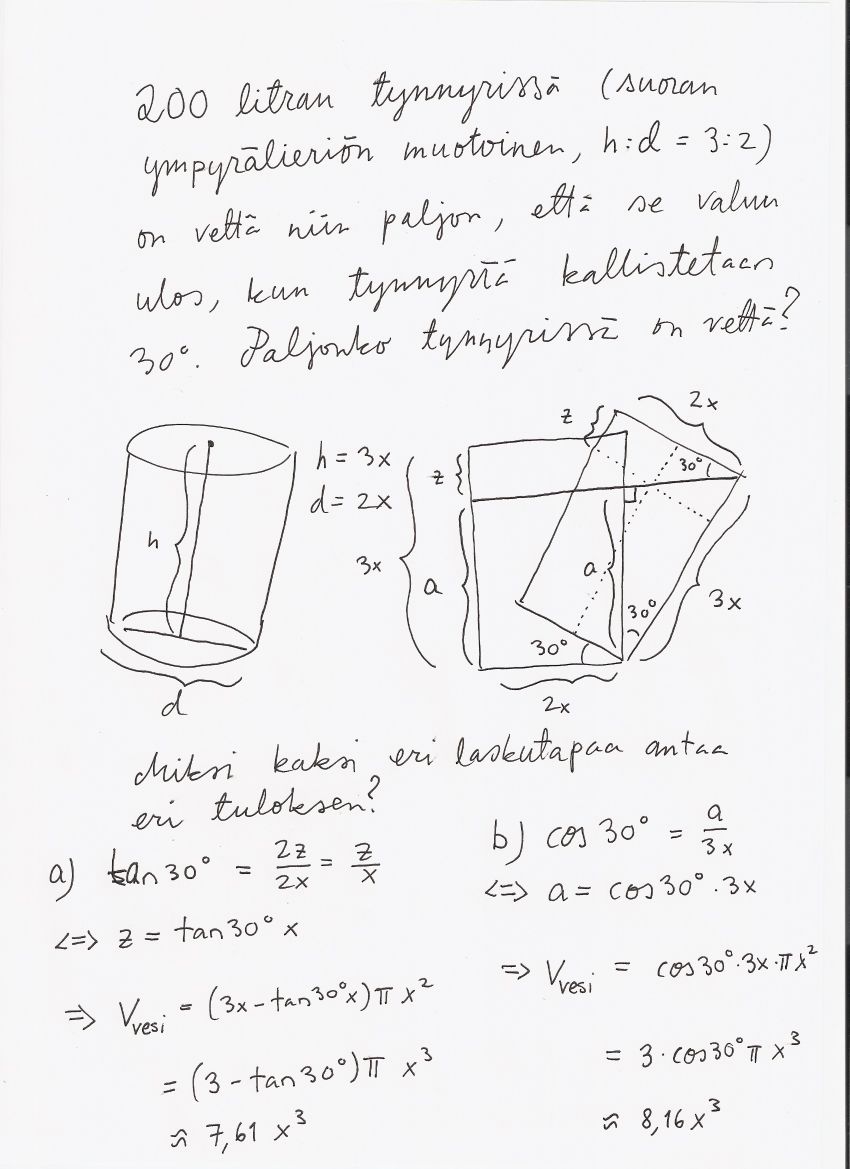 200 litran tynnyrissä (suoran
ympyrälieriön muotoinen, h:d = 3:2)
on vettä niin paljon, että se valuu
ulos, kun tynnyriä kallistetaan
30°. Paljonko tynnyrissä on vettä?
h
d
h = 3x
d = 2x
3x
z
a
2x
z
2x
30°
a
30°
30°
3x
Miksi kaksi eri laskutapaa antaa
eri tuloksen?
a) tan 30° = 2z/2x = z/x
<=> z = tan 30° x
=> Vvesi = (3x - tan30°x) π x²
= (3 - tan 30°) π x³
≈ 7,61 x³
b) cos 30° = a/3x
<=> a = cos 30° · 3x
=> Vvesi = cos 30° · 3x · π x²
= 3 · cos 30° π x³
≈ 8,16 x³